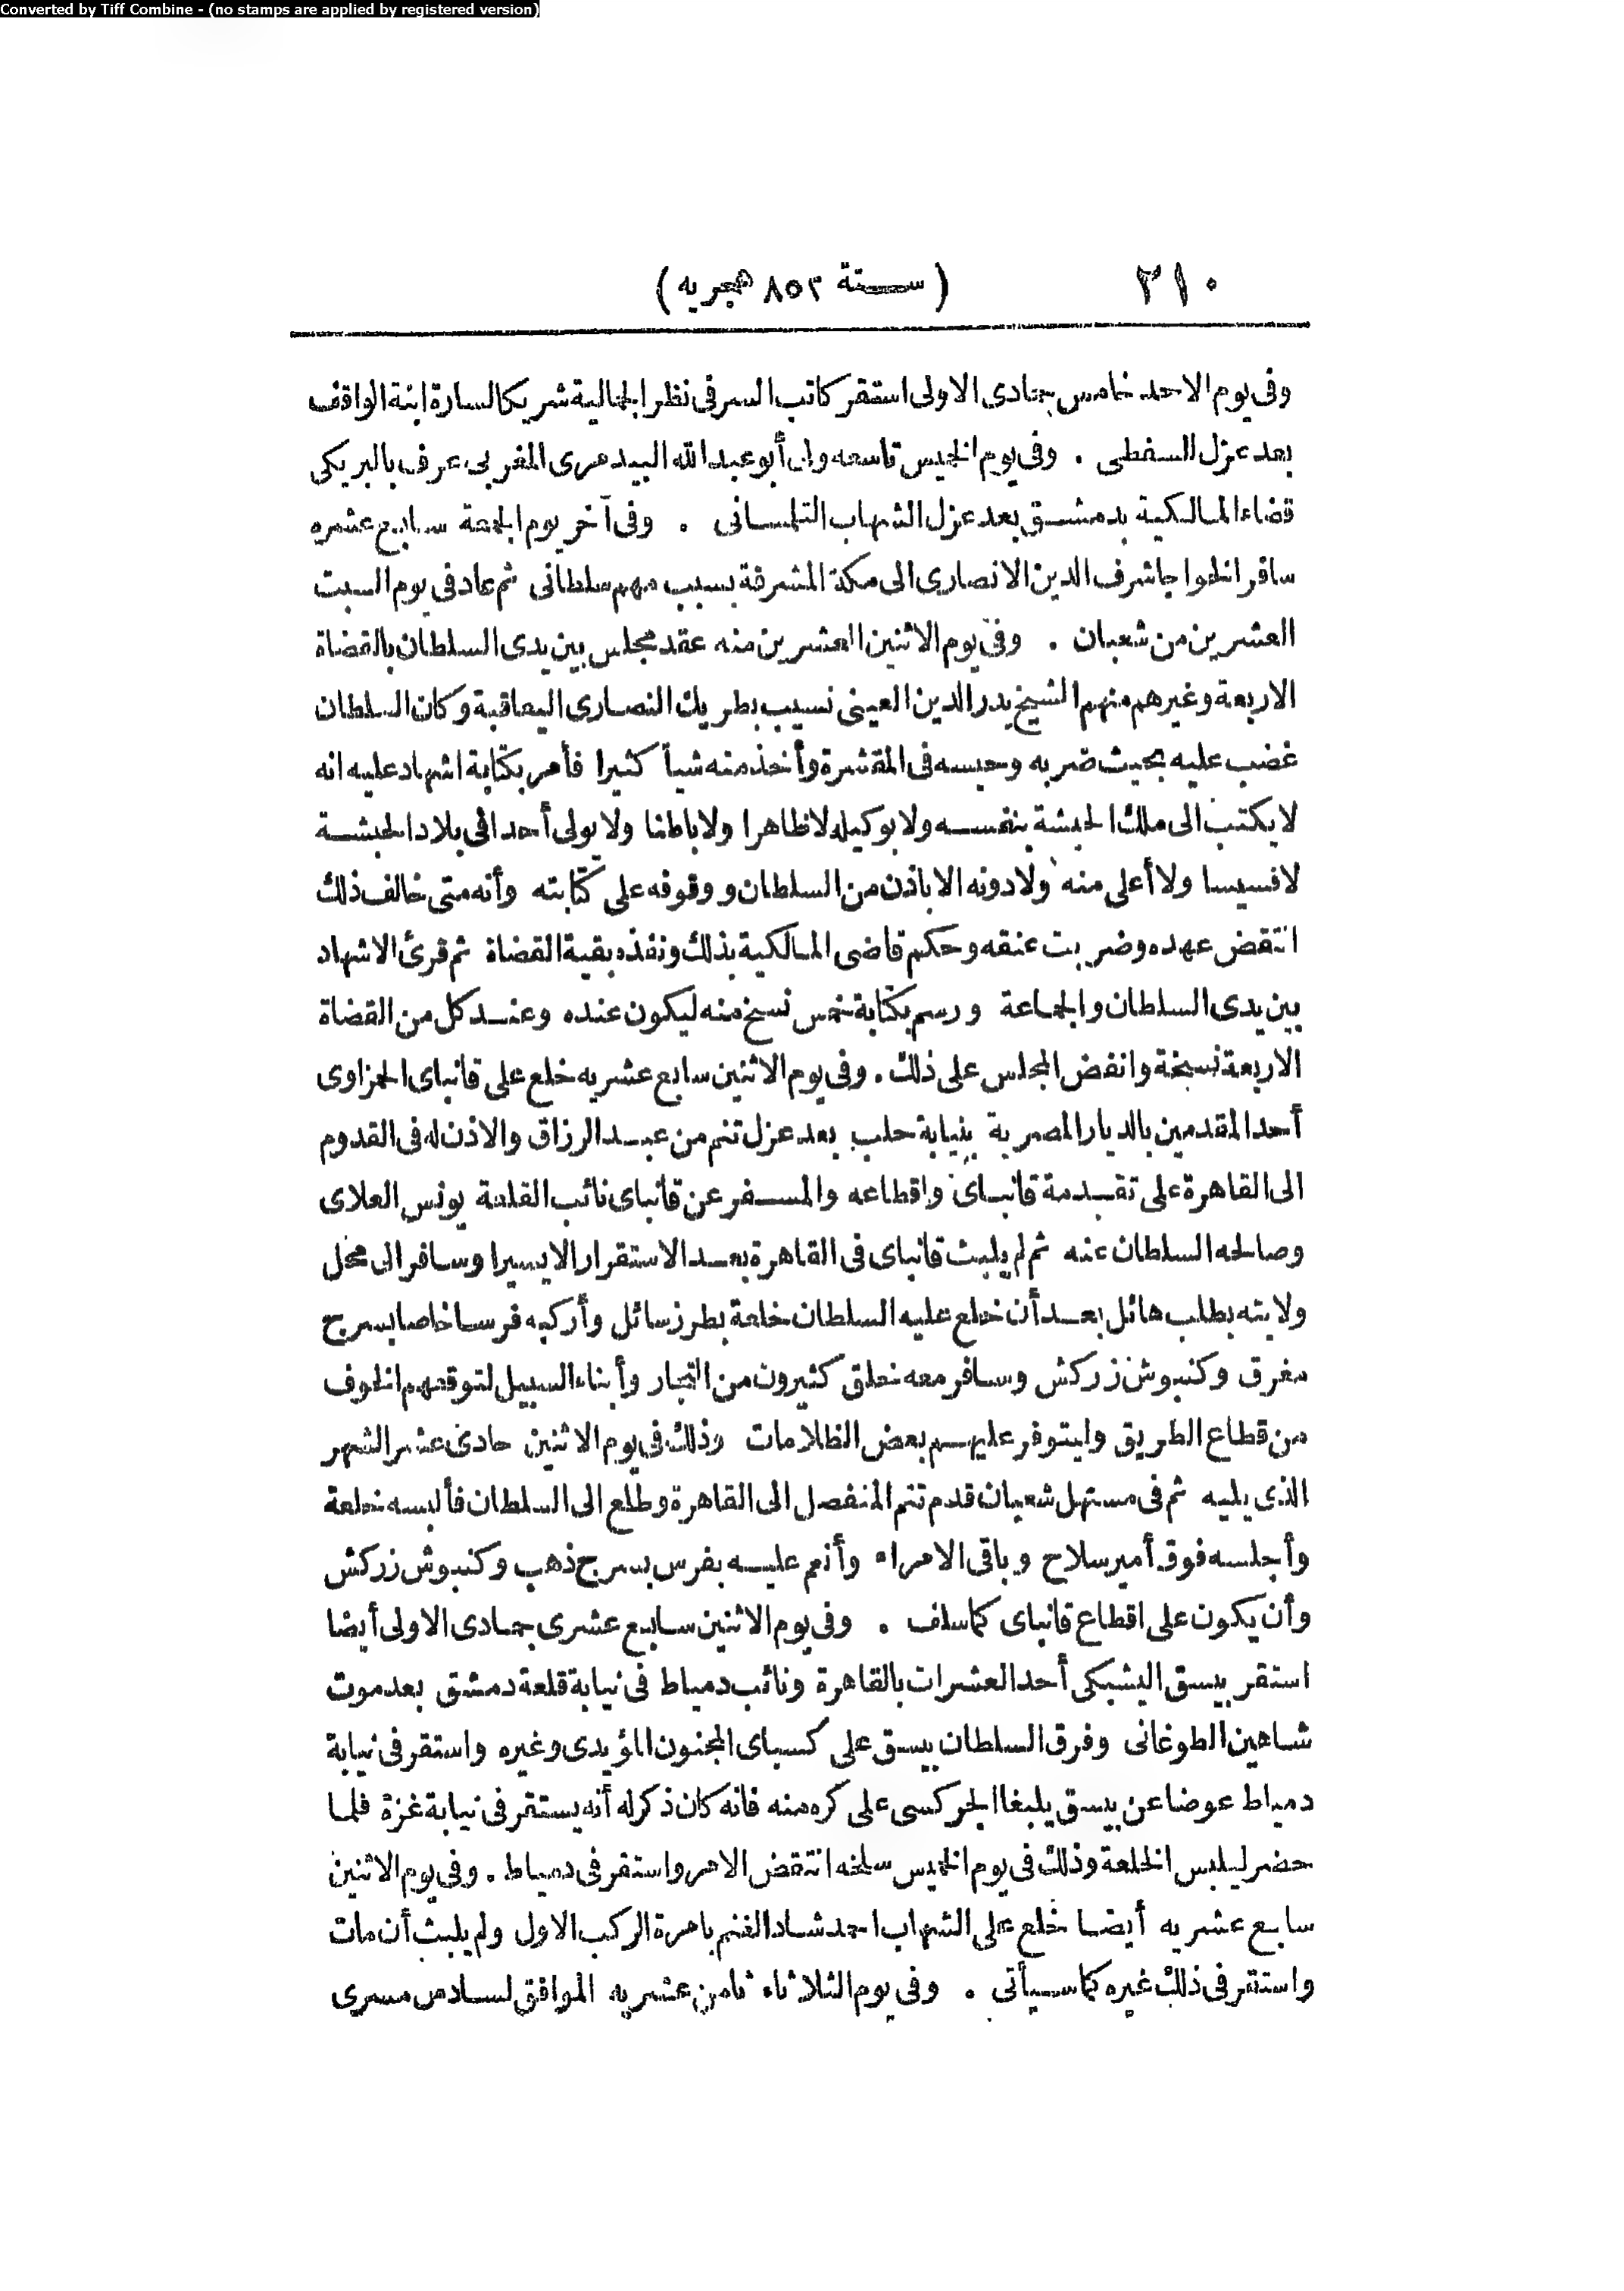 Converted by Tiff Combine - (no stamps are applied by registered version)
٢١٠ (سنة ٨٥٢ هجريه)
وفى يوم الاحد خامس جمادى الاولى استقر كاتب السر فى نظر الجمالية شريكا لسارة ابنة الواقف
بعد عزل السفطى . وفى يوم الخميس تاسعه ولى أبو عبد الله البيدمرى المغربى عرف بالبريكى
قضاء المالكية بدمشق بعد عزل الشهاب التلمسانى . وفى آخر يوم الجمعة سابع عشره
سافر الخواجا شرف الدين الانصارى الى مكة المشرفة بسبب مهم سلطانى ثم عاد فى يوم السبت
العشرين من شعبان . وفى يوم الاثنين العشرين منه عقد مجلس بين يدى السلطان بالقضاة
الاربعة وغيرهم منهم الشيخ بدر الدين العينى نسيب بطريك النصارى اليعاقبة وكان السلطان
غضب عليه بحيث ضربه وحبسه فى المقشرة وأخذ منه شيأ كثيرا فأمر بكتابة اشهاد عليه انه
لا يكتب الى ملك الحبشة بنفسه ولا بوكيله لا ظاهرا ولا باطنا ولا يولى أحدا فى بلاد الحبشة
لا قسيسا ولا أعلى منه ولا دونه الا باذن من السلطان ووقوفه على كتابته وأنه متى خالف ذلك
انتقض عهده وضربت عنقه وحكم قاضى المالكية بذلك ونفذه بقية القضاة ثم قرئ الاشهاد
بين يدى السلطان والجماعة ورسم بكتابة خمس نسخ منه ليكون عنده وعند كل من القضاة
الاربعة نسخة وانفض المجلس على ذلك . وفى يوم الاثنين سابع عشريه خلع على قانباى الحمزاوى
أحد المقدمين بالديار المصرية بنيابة حلب بعد عزل تنم من عبد الرزاق والاذن له فى القدوم
الى القاهرة على تقدمة قانباى واقطاعه والمسفر عن قانباى نائب القلعة يونس العلاى
وصالحه السلطان عنه ثم لم يلبث قانباى فى القاهرة بعد الاستقرار الا يسيرا وسافر الى محل
ولايته بطلب هائل بعد أن خلع عليه السلطان خلعة بطرز سائل وأركبه فرسا خاصا بسرج
مغرق وكنبوش زركش وسافر معه خلق كثيرون من التجار وأبناء السبيل لتوقعهم الخوف
من قطاع الطريق وليتوفر عليهم بعض الظلامات وذلك فى يوم الاثنين حادى عشر الشهر
الذى يليه ثم فى مستهل شعبان قدم تنم المنفصل الى القاهرة وطلع الى السلطان فألبسه خلعة
وأجلسه فوق أمير سلاح وباقى الامراء وأنعم عليه بفرس بسرج ذهب وكنبوش زركش
وأن يكون على اقطاع قانباى كما سلف . وفى يوم الاثنين سابع عشرى جمادى الاولى أيضا
استقر بيسق اليشبكى أحد العشرات بالقاهرة ونائب دمياط فى نيابة قلعة دمشق بعد موت
شاهين الطوغانى وفرق السلطان بيسق على كسباى المجنون المؤيدى وغيره واستقر فى نيابة
دمياط عوضا عن بيسق يلبغا الجركسى على كره منه فانه كان ذكر له أنه يستقر فى نيابة غزة فلما
حضر ليلبس الخلعة وذلك فى يوم الخميس سلخه انتقض الامر واستقر فى دمياط . وفى يوم الاثنين
سابع عشريه أيضا خلع على الشهاب احمد شاد الغنم بامرة الركب الاول ولم يلبث أن مات
واستقر فى ذلك غيره كما سيأتى . وفى يوم الثلاثاء ثامن عشريه الموافق لسادس مسرى